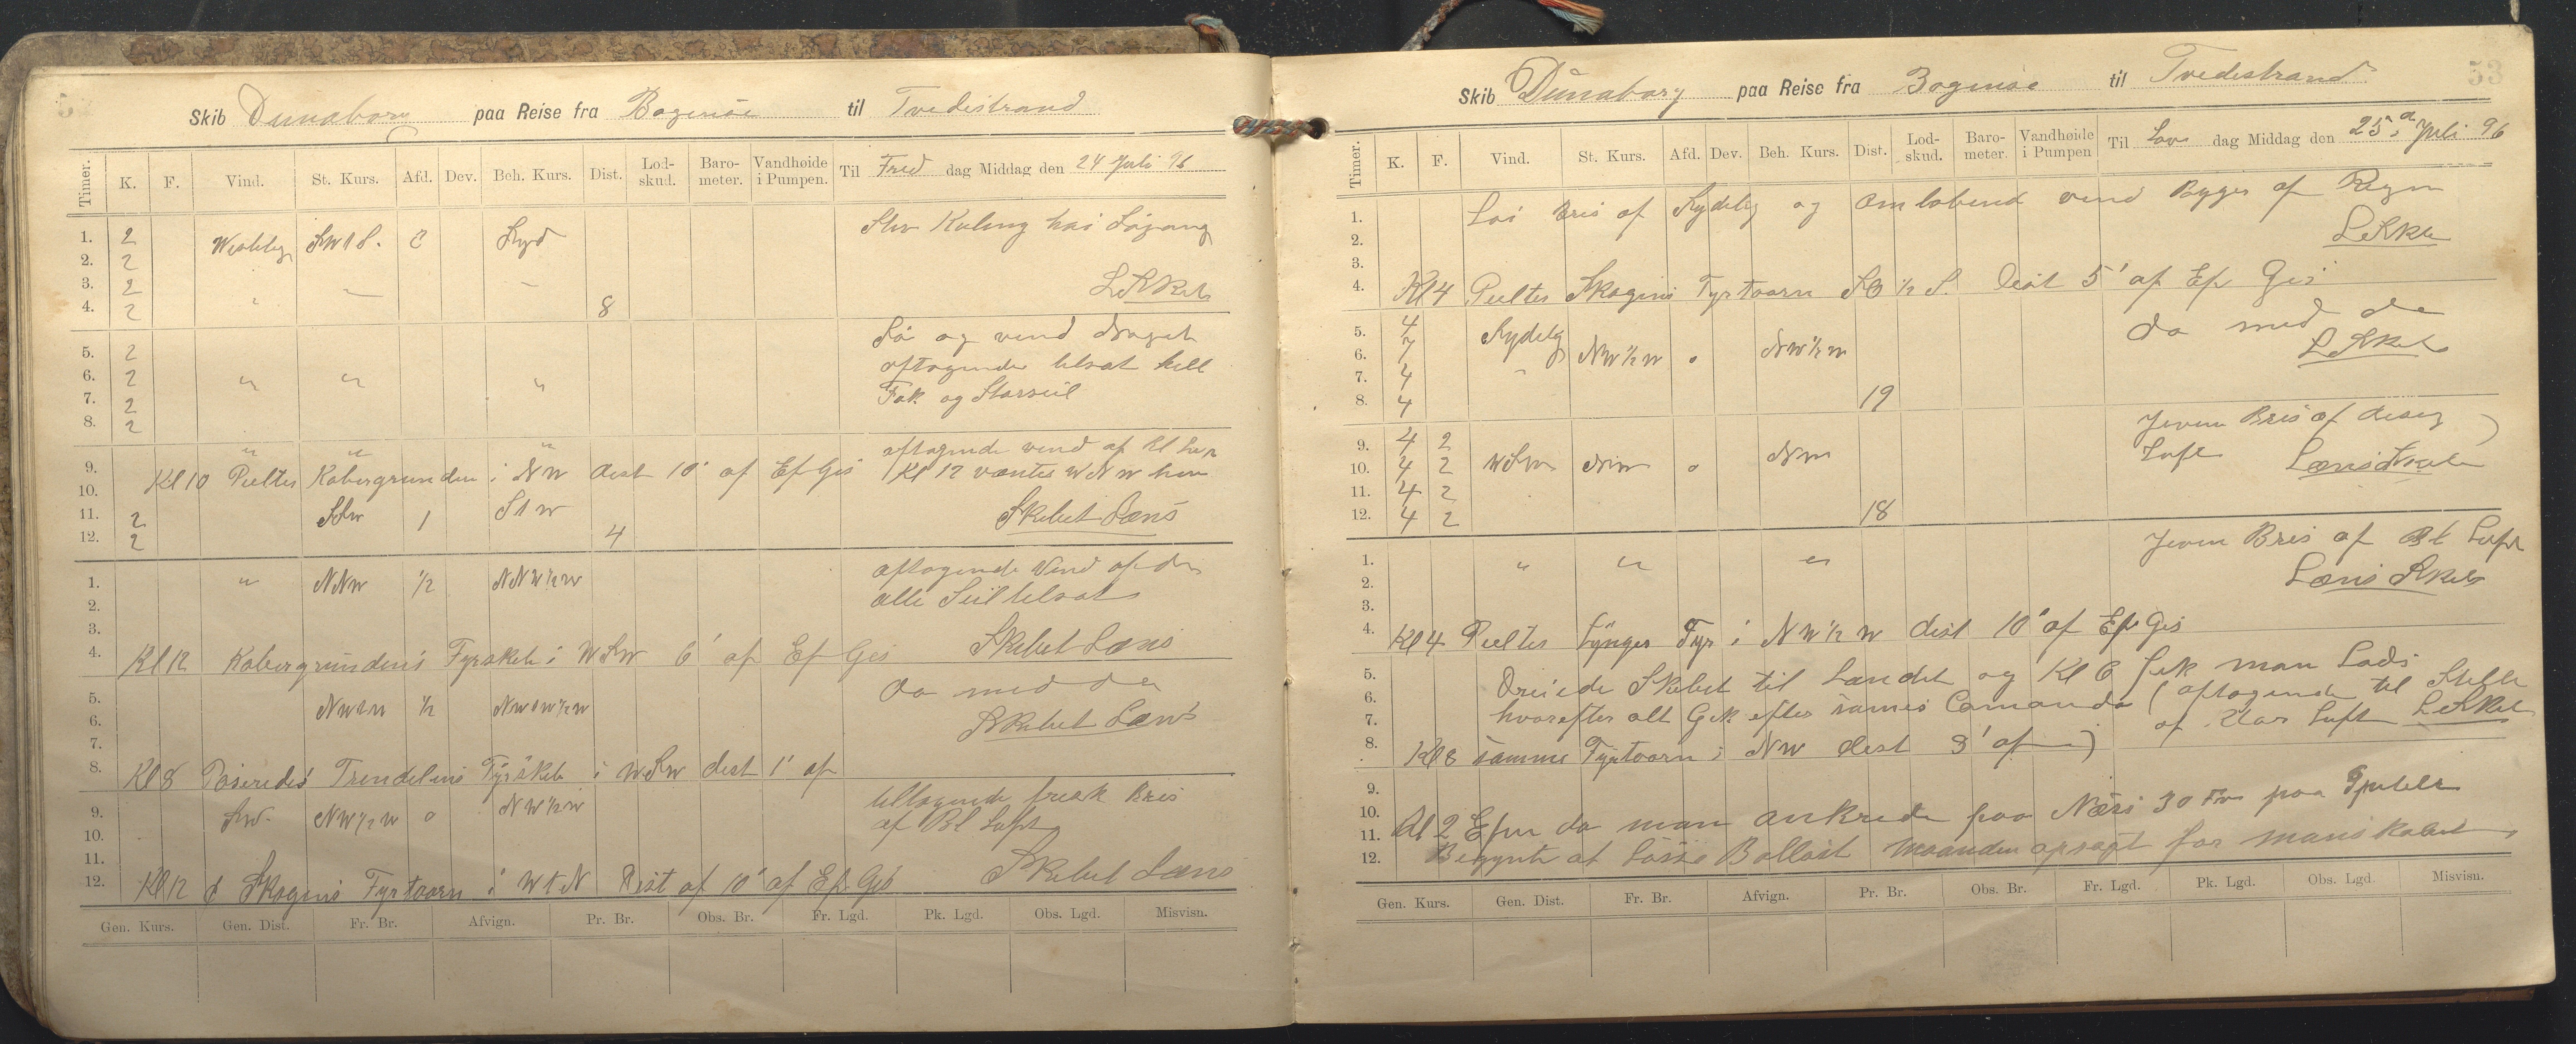 Skib Dunaborg paa Reise fra Bogense til Tvedestrand
Timer. K. F. Vind. St. Kurs. Afd. Dev. Beh. Kurs. Dist. Lod-skud. Baro-meter. Vandhøide i Pumpen. Til Fred dag Middag den 24 Juli 96
1. 2 Westlig SW t S. Syd
2. 2
3. 2
4. 2 " " 8
Kuling
5. 2
6. 2 " " "
7. 2
8. 2
og vind
aftagende tilsat
Fok og Storseil
9. " " "
10. Kl 10 Peiltes Kobergrunden i NW dist 10' af Ef Gis
11. 2 SSW 1 S t W
12. 2 4
aftagende vind af
Kl 12 W N W
Skibet Læns
1. " NNW 1/2 NNW 1/2 W
2.
3.
4. Kl 12 Kobergrundens Fyrskib i WSW 6' af Ef Gis
aftagende Vind af do
alle Seil tilsat
Skibet Læns
5.
6. NW t W 1/2
7.
8. Kl 8 Paseredes Trendelens Fyrskib i WSW dist 1' af
do med do
Skibet Læns
9. SW. NW 1/2 W 0 NW 1/2 W
10.
11.
12. Kl 12 Skagens Fyrtaarn i W t N Dist af 10' af Ef Gis
tiltagende frisk Bris
af Bl Luft
Skibet Læns
Gen. Kurs. Gen. Dist. Fr. Br. Afvign. Pr. Br. Obs. Br. Fr. Lgd. Pk. Lgd. Obs. Lgd. Misvisn.
53
Skib Dünaborg paa Reise fra Bogense til Tvedestrand
Timer. K. F. Vind. St. Kurs. Afd. Dev. Beh. Kurs. Dist. Lod-skud. Baro-meter. Vandhøide i Pumpen Til Lør dag Middag den 25 Juli 96
1. Bris af Sydelig og omløbend vind Byger af Regn
2.
3.
4. Kl 4 Peiltes Skagens Fyrtaarn SO 1/2 S. Dist 5' af Ef Gis
5. 4 Sydelig
6. NW 1/2 W 0 NW 1/2 W
7. 4 "
8. 4 19
do med do
9. 4 2
10. 4 2 WSW NW 0 NW
11. 4 2
12. 4 2 18
Jevn Bris af diseg
Luft Læns Skib
1. " " "
2.
3.
4. Kl 4 Peiltes Lÿngør Fyr i NW 1/2 W dist 10' af Ef Gis
Jevn Bris af Bl Luft
Læns Skib
5. Dreiede Skibet til Landet og Kl 6 fik man Lods
6. hvorefter alt Gik efter sames Comando ( aftagende til Stille
7. af klar Luft
8. Kl 8 samme Fyrtaarn i NW dist 3' af )
9.
10.
11. Kl 2 Efm da man ankrede paa Næss 30 Fv paa
12. Begynte at Lösse Ballast for manskabet
Gen. Kurs. Gen. Dist. Fr. Br. Afvign. Pr. Br. Obs. Br. Fr. Lgd. Pk. Lgd. Obs. Lgd. Misvisn.